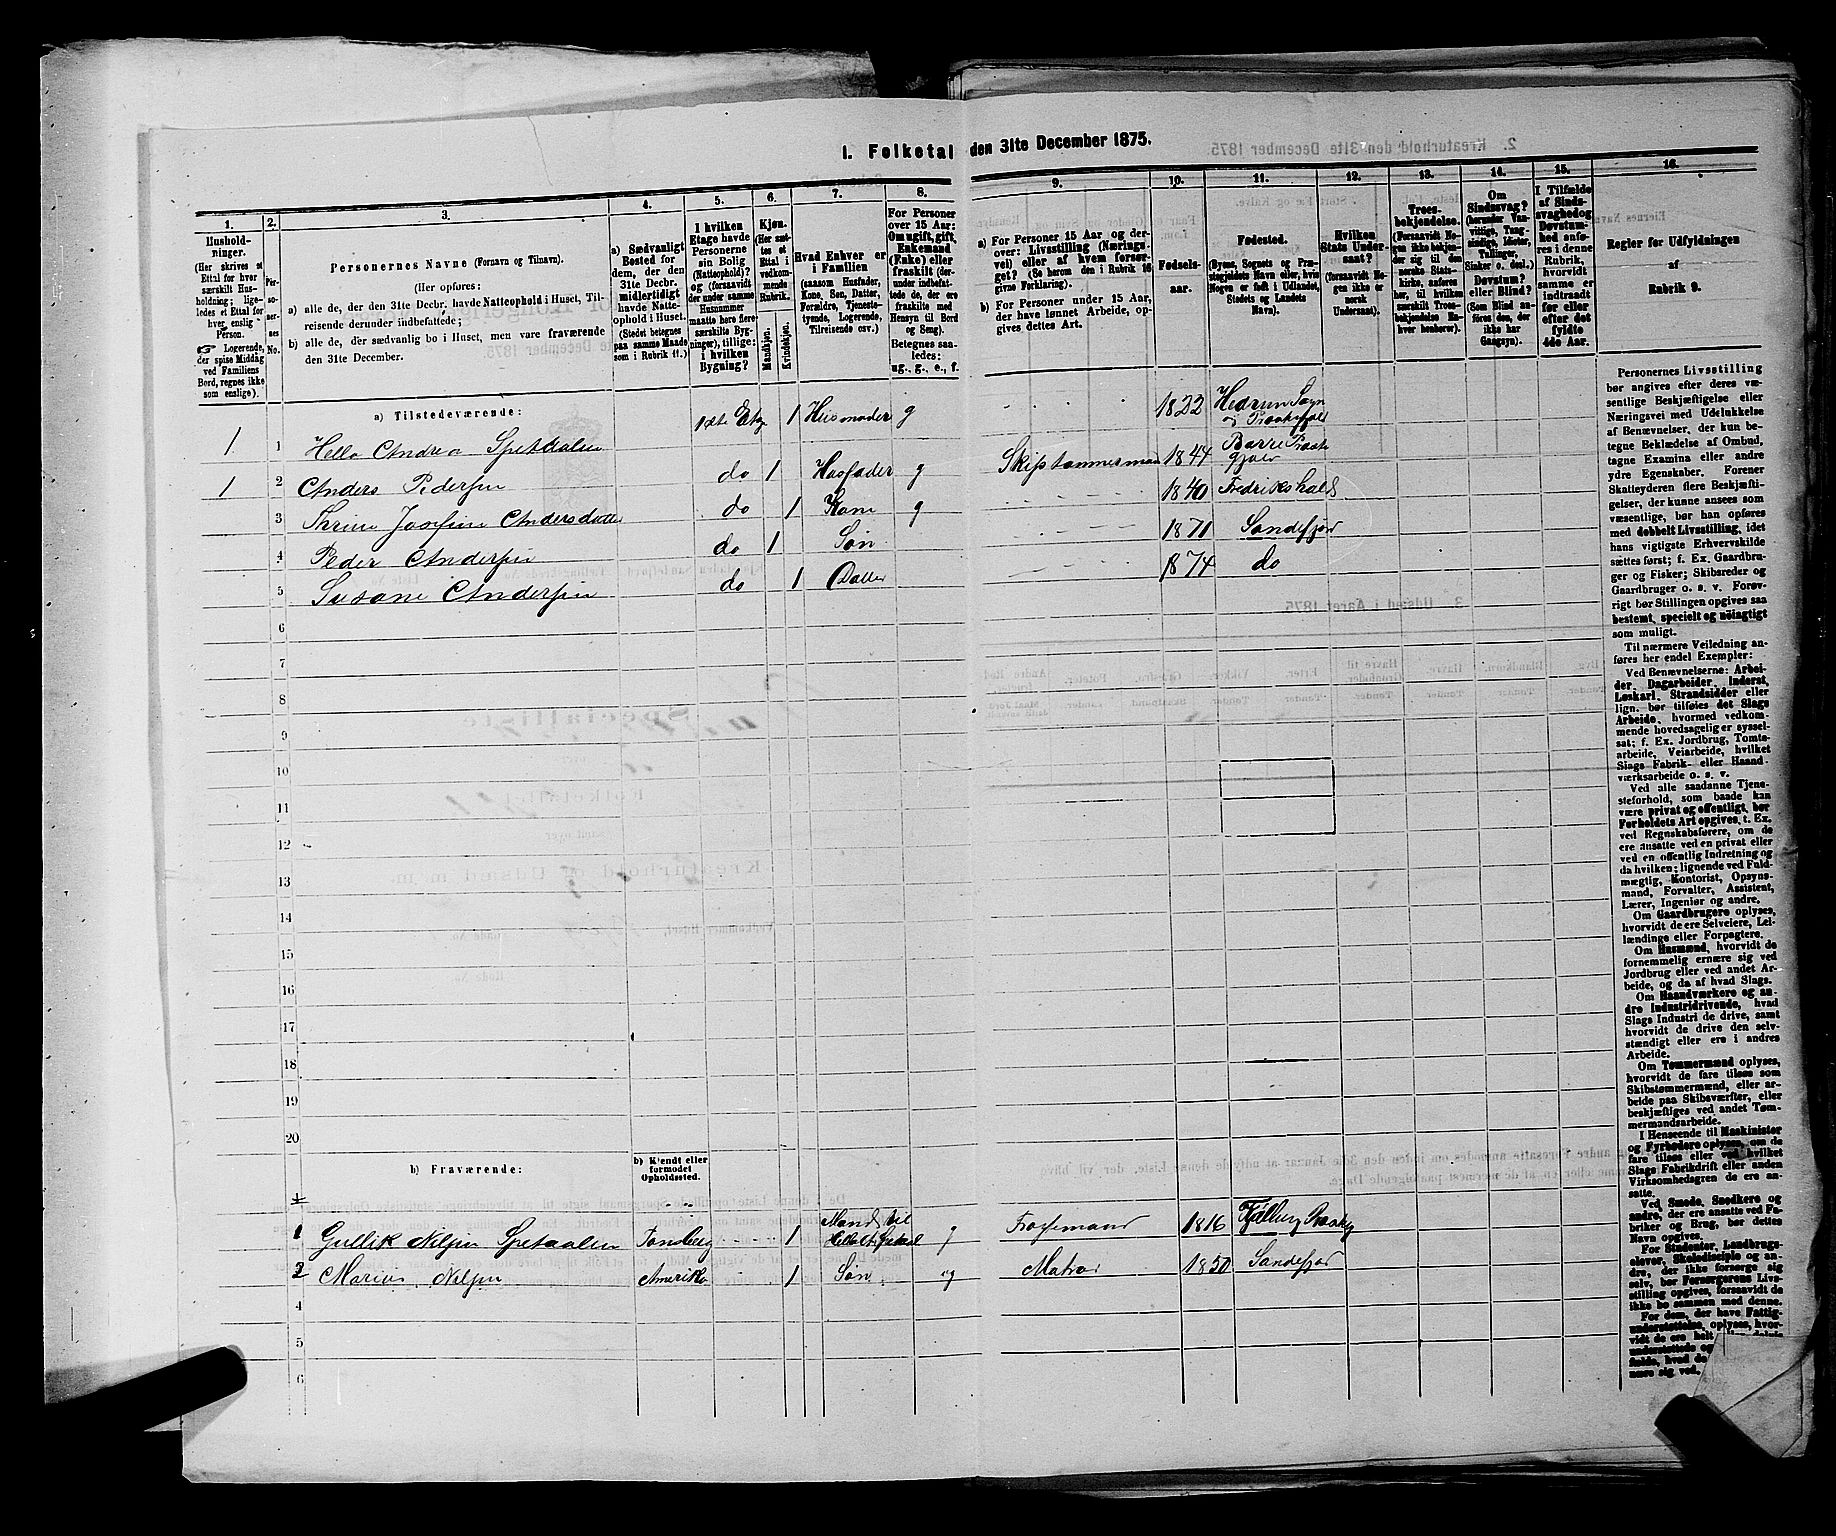 1. Folketal den 31te December 1875.
1. 2. 3. 4. 5. 6. 7. 8. 9. 10. 11. 12. 13. 14. 15. 16.
Hushold-
ninger.
(Her skrives et
Ettal for hver
særskilt Hus-
holdning; lige-
ledes et Ettal for
hver enslig
Person.
Logerende,
der spise Middag
ved Familiens
Bord, regnes ikke
som enslige).
Per-
so-
ner-
nes
No.
Personernes Navne (Fornavn og Tilnavn).
(Her opføres:
a) alle de, der den 31te Decbr. havde Natteophold i Huset, Til-
reisende derunder indbefattede;
b) alle de, der sædvanlig bo i Huset, men vare fraværende
den 31te December.
a) Sædvanligt
Bosted for
dem, der den
31te Decbr.
midlertidigt
havde Natte-
ophold i Huset.
(Stedet betegnes
paa samme Maade
som i Rubrik 11.)
I hvilken
Etage havde
Personerne
sin Bolig
(Natteophold)?
og (forsaavidt
der under samme
Husnummer
maatte høre flere
særskilte Byg-
ninger), tillige:
i hvilken
Bygning?
Kjøn.
(Her sæt-
tes et
Ettal i
vedkom-
mende
Rubrik.
Mandkjøn.
Kvindekjøn.
Hvad Enhver er
i Familien
(saasom Husfader,
Kone, Søn, Datter,
Forældre, Tjeneste-
tyende, Logerende,
Tilreisende osv.)
For Personer
over 15 Aar:
Om ugift, gift,
Enkemand
(Enke) eller
fraskilt (der-
under indbefat-
tede de, der ere
fraskilte med
Hensyn til Bord
og Seng).
Betegnes saa-
ledes:
ug., g., e., f.
a) For Personer 15 Aar og der-
over: Livsstilling (Nærings-
vei) eller af hvem forsør-
get? (Se herom den i Rubrik 16
givne Forklaring).
b) For Personer under 15 Aar,
der have lønnet Arbeide, op-
gives dettes Art.
Fødsels-
aar.
Fødested.
(Byens, Sognets og Præ-
stegjeldets Navn eller, hvis
Nogen er født i Udlandet,
Stedets og Landets
Navn).
Hvilken
Stats Under-
saat?
(forsaavidt No-
gen ikke er
norsk
Undersaat).
Troes-
bekjendelse.
(Forsaavidt No-
gen ikke bekjen-
der sig til den
norske Stats-
kirke, anføres
her, til hvilken
særskilt Troes-
bekjendelse En-
hver henhører).
Om
Sindssvag?
(herunder Van-
vittige, Tung-
sindige, Idioter,
Tullinger,
Sinker o. desl.).
Døvstum?
eller Blind?
(Som Blind an-
føres den, der
ikke har
Gangsyn).
I Tilfælde
af Sinds-
svaghed og
Døvstum-
hed anfø-
res i denne
Rubrik,
hvorvidt
samme er
indtraadt
før eller
efter det
fyldte
4de Aar.
Regler for Udfyldningen
af
Rubrik 9.
Personernes Livsstilling
bør angives efter deres væ-
sentlige Beskjæftigelse eller
Næringsvei med Udelukkelse
af Benævnelser, der kun be-
tegne Beklædelse af Ombud,
tagne Examina eller andre
ydre Egenskaber. Forener
Skatteyderen flere Beskjæfti-
gelser, der kunne ansees som
væsentlige, bør han opføres
med dobbelt Livsstilling, idet
hans vigtigste Erhvervskilde
sættes først; f. Ex. Gaardbru-
ger og Fisker; Skibsreder og
Gaardbruger o. s. v. Forøv-
rigt bør Stillingen opgives saa
bestemt, specielt og nøiagtigt
som muligt.
Til nærmere Veiledning an-
føres her endel Exempler:
Ved Benævnelserne: Arbei-
der, Dagarbeider, Inderst,
Løskarl, Strandsidder eller
lign. bør tilføies det Slags
Arbeide, hvormed vedkom-
mende hovedsagelig er syssel-
sat; f. Ex. Jordbrug, Tomte-
arbeide, Veiarbeide, hvilket
Slags Fabrik- eller Haand-
værksarbeide o. s. v.
Ved alle saadanne Tjene-
steforhold, som baade kan
være privat og offentligt, bør
Forholdets Art opgives, t. Ex.
ved Regnskabsførere, om de
ere ansatte ved en privat eller
ved en offentlig Indretning og
da hvilken; lignende ved Fuld-
mægtig, Kontorist, Opsyns-
mand, Forvalter, Assistent,
Lærer, Ingeniør og andre.
Om Gaardbrugere oplyses,
hvorvidt de ere Selveiere, Lei-
lændinge eller Forpagtere.
Om Husmænd, hvorvidt de
fornemmelig ernære sig ved
Jordbrug eller ved andet Ar-
beide, og da af hvad Slags.
Om Haandværkere og an-
dre Industridrivende, hvad
Slags Industri de drive, samt
hvorvidt de drive den selv-
stændigt eller ere i andres
Arbeide.
Om Tømmermænd oplyses,
hvorvidt de fare tilsøs som
Skibstømmermænd, eller ar-
beide paa Skibsværfter, eller
beskjæftiges ved andet Tøm-
mermandsarbeide.
I Henseende til Maskinister
og Fyrbødere oplyses, om de
fare tilsøs eller ved hvilket
Slags Fabrikdrift eller anden
Virksomhedsgren de ere an-
satte.
Ved Smede, Snedkere og
andre, der ere ansatte ved Fa-
briker og Brug, bør dettes
Navn opgives.
For Studenter, Landbrugs-
elever, Skoledisciple og an-
dre, der ikke forsørge sig
selv, bør Forsørgerens Livs-
stilling opgives, forsaavidt de
ikke bo sammen med denne.
For dem, der have Fattig-
understøttelse, oplyses, hvor-
vidt de ere helt eller delvis
understøttede og
a) Tilstedeværende:
1 1 Hella Andrea Spetdalen 1ste Etg 1 Husmoder g 1822 Hedrum Sogn
1 2 Anders Pedersen do 1 Husfader g Skipstømmesman 1844
3 Thrine Josefine Andersdatte do 1 Kone g 1840 Fredrikshald
4 Peder Andersen do 1 Søn 1871 Sandefjor
5 Susane Andersen do 1 Datter 1874 do
6
7
8
9
10
11
12
13
14
15
16
17
18
19
20
b) Fraværende:
b) Kjendt eller
formodet
Opholdssted.
1 Gullik Nilsen Spetaalen Tønsberg 1 Mand til g 1816
2 Marius Nilsen Amerika 1 Søn ug Matros 1850 Sandefjor
4
5
6